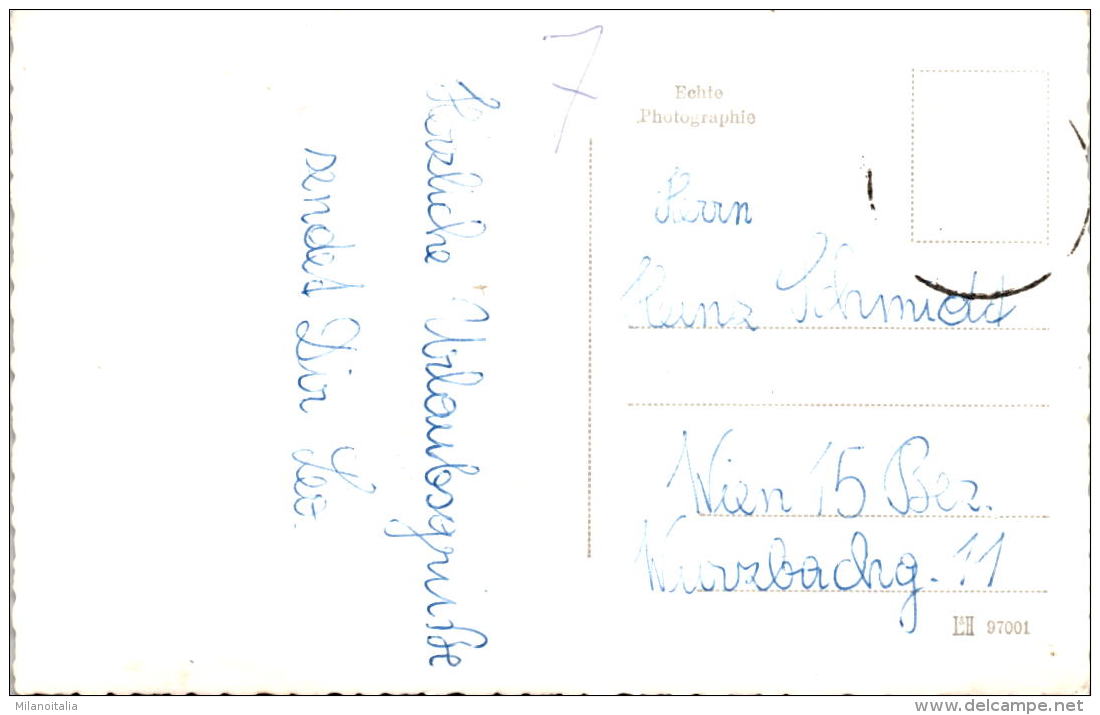 7
Herzliche Urlaubsgrüße
sendet Dir Leo.
Echte
Photographie
Herrn
Heinz Schmidt
Wien 15 Bez.
Wurzbachg. 11
L&H 97001
Milanoitalia
www.delcampe.net